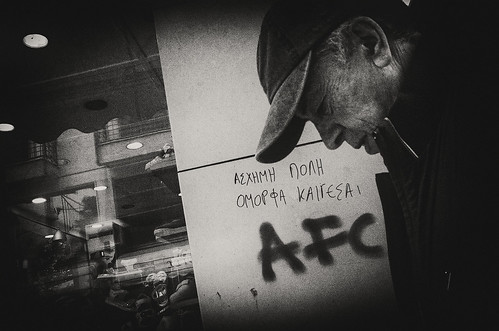 ΑΣΧΗΜΗ ΠΟΛΗ
ΟΜΟΡΦΑ ΚΑΙΓΕΣΑΙ
AFC